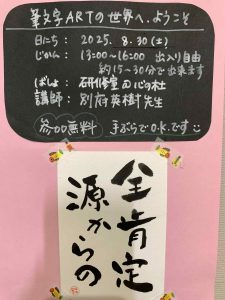 筆文字ARTの世界へ、ようこそ
日にち: 2025. 8.30 (土)
じかん: 13:00～16:00 出入り自由
約15～30分で出来ます
ばしょ: 研修室 @心の杜
講師: 別府英樹先生
参加無料 手ぶらでO.K.です
全肯定
源からの